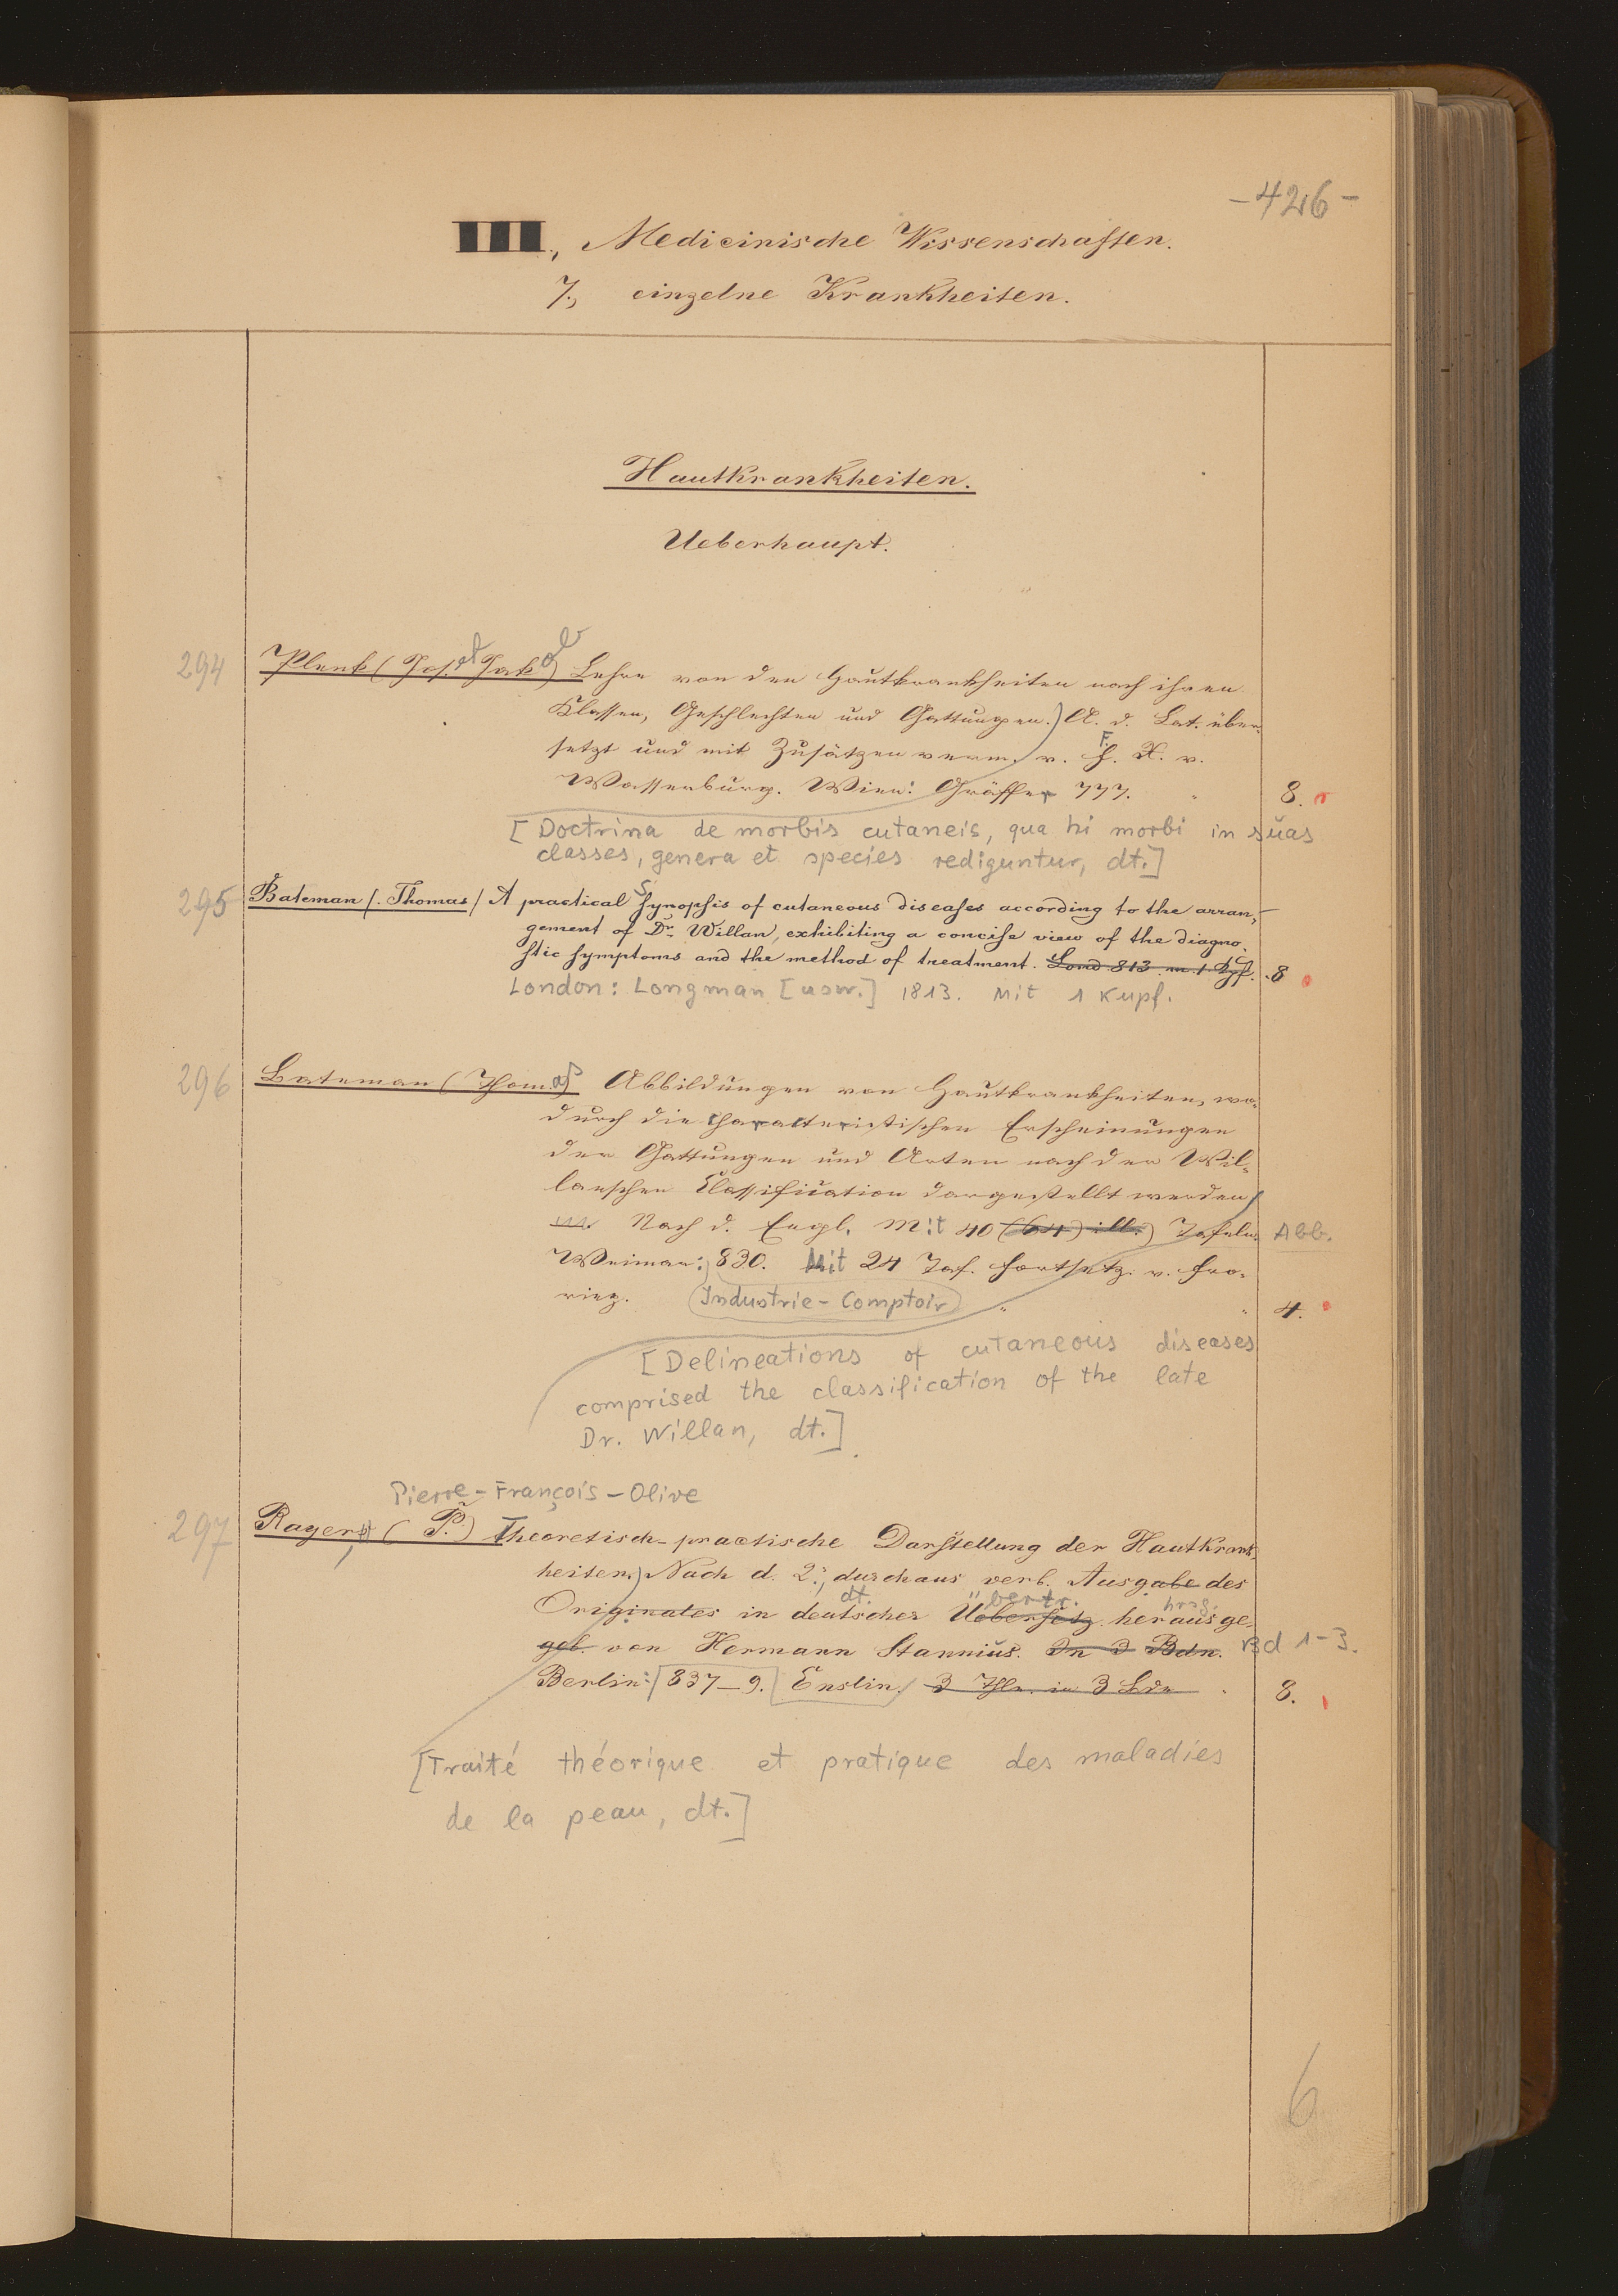 -426-
III., Medicinische Wissenschaften.
7., einzelne Krankheiten.
Hautkrankheiten.
Ueberhaupt.
294 Plenk (Jos.ef Jakob) Lehre von den Hautkrankheiten nach ihren
Klassen, Geschlechten und Gattungen.) A. d. Lat. über-
setzt und mit Zusätzen verm. v. F. X. v.
Wasserburg. Wien: Gräffer 777. 8.
[Doctrina de morbis cutaneis, qua hi morbi in suas
classes, genera et species rediguntur, dt.]
295 Bateman (Thomas) A practical Synopsis of cutaneous diseases according to the arran-
gement of Dr. Willan, exhibiting a concise view of the diagno-
stic symptoms and the method of treatment. Lond. 813. m. 1 Kpf. 8
London: Longman [usw.] 1813. Mit 1 Kupf.
296 Bateman (Thomas) Abbildungen von Hautkrankheiten, wo-
durch die characteristischen Erscheinungen
der Gattungen und Arten nach der Wil-
lanschen Classification dargestellt werden
m. Nach d. Engl. Mit 40 (64) ill.) Tafeln. Abb.
Weimar: 830. Mit 24 Taf. Fortsetz. v. Fro-
riep. Industrie-Comptoir 4.
[Delineations of cutaneous diseases
comprised the classification of the late
Dr. Willan, dt.]
Pierre-François-Olive
297 Rayer, (P.) Theoretisch-practische Darstellung der Hautkrank-
heiten.) Nach d. 2., durchaus verb. Ausgabe des
dt. übertr. hrsg.
Originales in deutscher Uebersetz. herausge-
geb. von Hermann Stannius. In 3 Bdn. Bd 1-3.
Berlin: 837-9. Enslin. 3 Thle. in 3 Bdn 8.
[Traité théorique et pratique des maladies
de la peau, dt.]
6